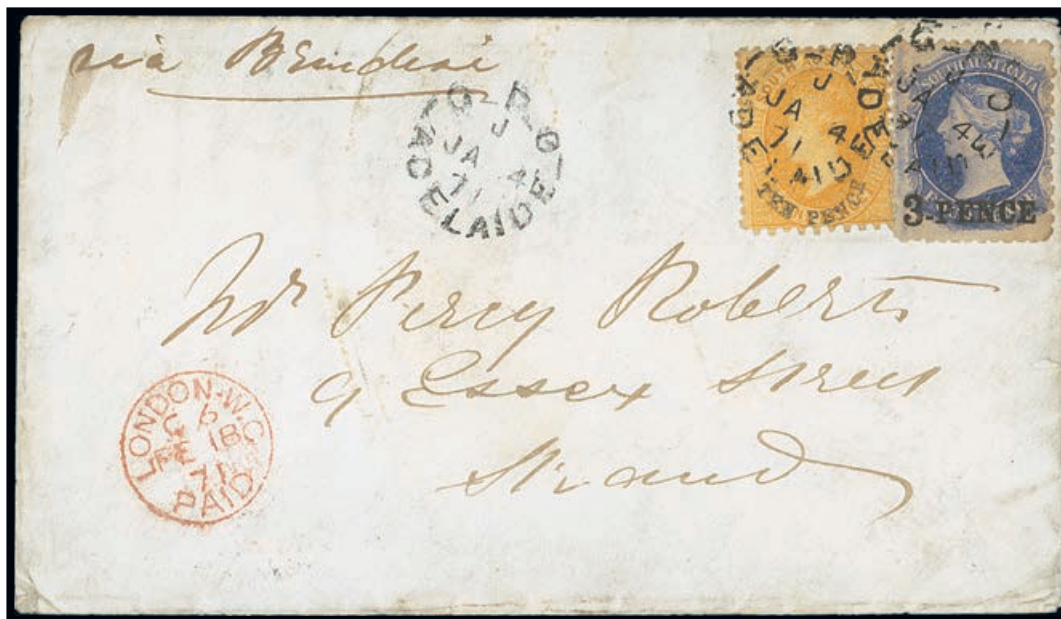 via Brindisi
G.P.O
J
JA 4
71
ADELAIDE
G.P.O
J
JA 4
71
ADELAIDE
SOUTH
TEN PENCE
G.P.O
JA 4
SOUTH AUSTRALIA
3-PENCE
Mr Percy Roberts
9 Essex Street
Strand
LONDON-W.C
C 6
FE 18
71
PAID